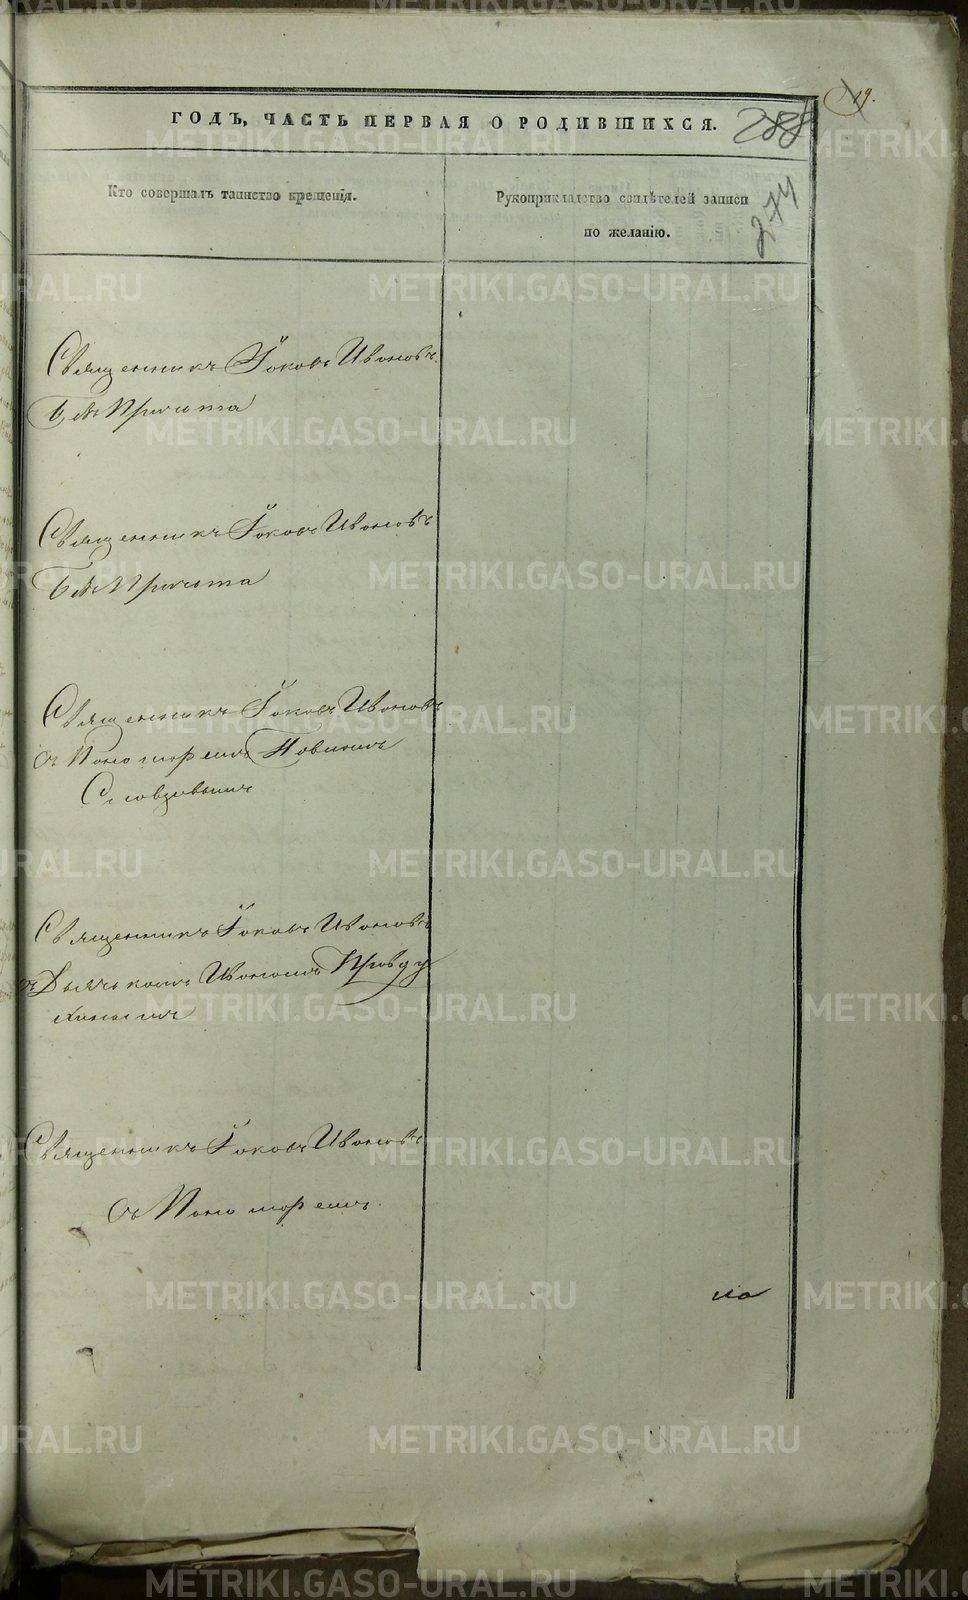 ГОДЪ, ЧАСТЬ ПЕРВАЯ О РОДИВШИХСЯ.
288
274
Кто совершалъ таинство крещенія.
Рукоприкладство свидѣтелей записи
по желанію.
Священникъ Іаковъ Ивановъ
безъ Причта
Священникъ Іаковъ Ивановъ
безъ Причта
Священникъ Іаковъ Ивановъ
съ Пономоремъ Павломъ
Словцовымъ
Священникъ Іаковъ Ивановъ
съ Дьячькомъ Иваномъ
Священникъ Іаковъ Ивановъ
съ Пономоремъ.
METRIKI.GASO-URAL.RU